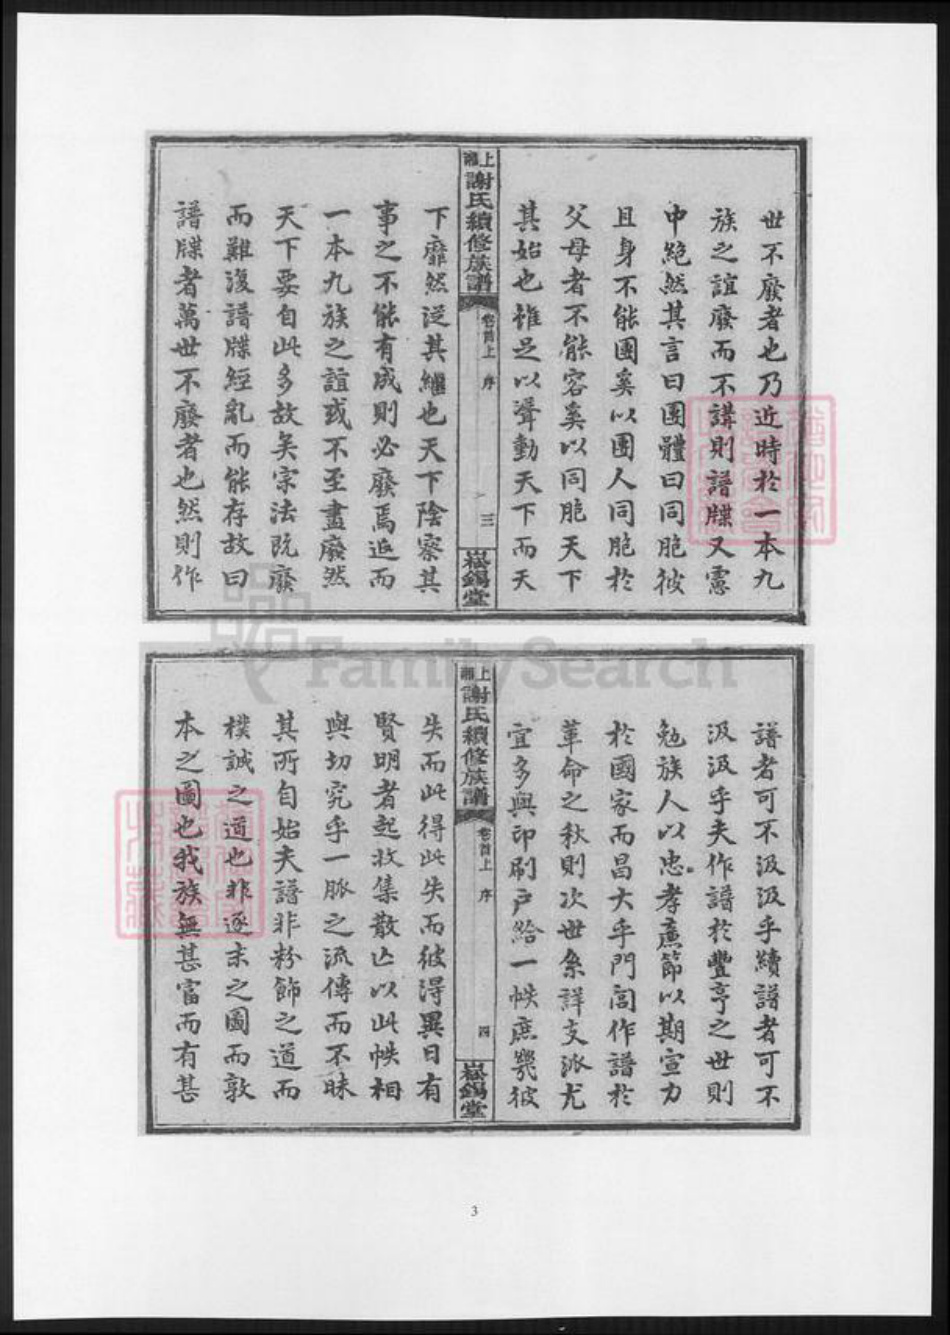 世不廢者也乃近時於一本九
族之誼廢而不講則譜牒又憲
中絕然其言曰團體曰同胞彼
且身不能團奚以團人同胞於
父母者不能容奚以同胞天下
其始也惟足以聳動天下而天
上湘謝氏續修族譜 卷首上 序 三 崧錫堂
下靡然從其繼也天下陰察其
事之不能有成則必廢焉返而
一本九族之誼或不至盡廢然
天下要自此多故矣宗法既廢
而難復譜牒經亂而能存故曰
譜牒者萬世不廢者也然則作
譜者可不汲汲乎續譜者可不
汲汲乎夫作譜於豐亨之世則
勉族人以忠孝廉節以期宣力
於國家而昌大乎門閭作譜於
革命之秋則次世系詳支派尤
宜多與印刷戶給一帙庶幾彼
上湘謝氏續修族譜 卷首上 序 四 崧錫堂
失而此得此失而彼得異日有
賢明者起收集散亡以此帙相
與切究乎一脈之流傳而不昧
其所自始夫譜非粉飾之道而
樸誠之道也非逐末之圖而敦
本之圖也我族無甚富而有甚
FamilySearch
3